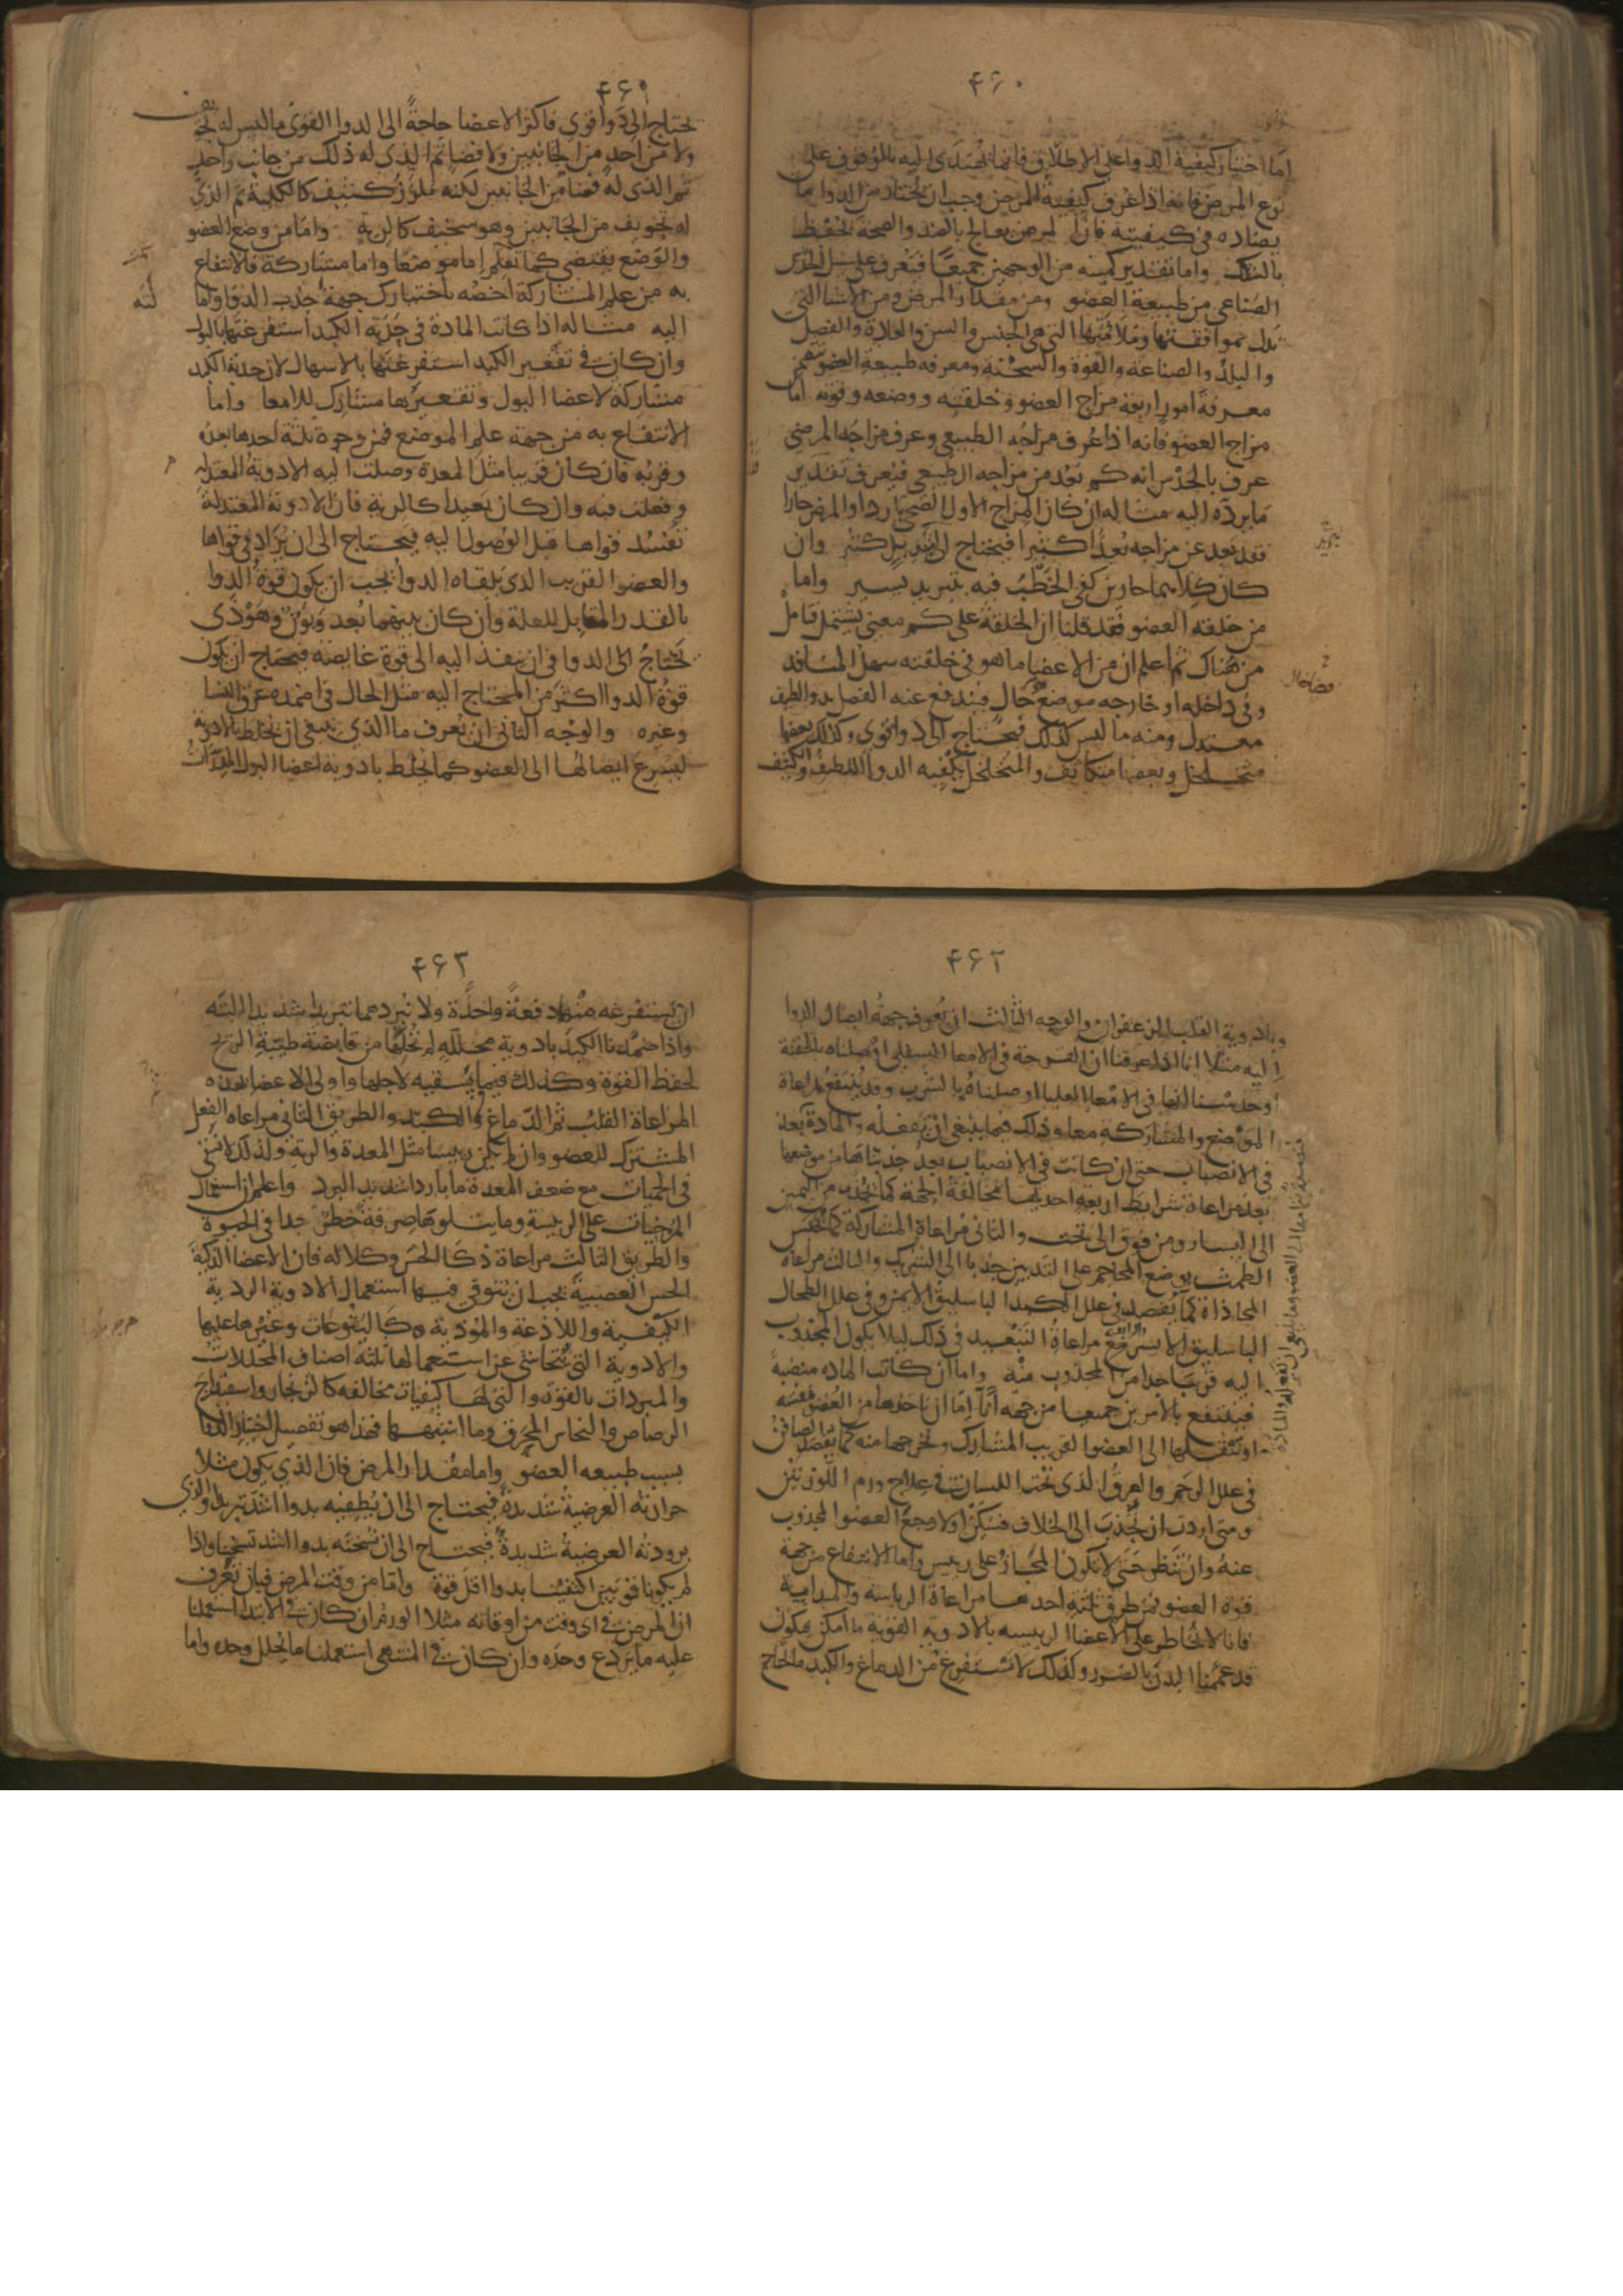 ۴۶۰
اما اختيار كيفية الدوا على الاطلاق فانما يهتدى اليه بالوقوف على
نوع المرض فانه اذا عرف كيفية المرض وجب ان يختار من الدوا ما
يضاده فى كيفيته فان المرض يعالج بالضد والصحة تحفظ
بالشاكل واما تقدير كميته من الوجهين جميعا فيعرف على سبيل الحدس
الصناعى من طبيعة العضو ومن مقدار المرض ومن الاشيا التى
تدل بموافقتها وملايمتها التى هى الجنس والسن والعادة والفصل
والبلد والصناعة والقوة والسحنة ومعرفه طبيعة العضو تتضمن
معرفة امور اربعة مزاج العضو وخلقته ووضعه وقوته اما
مزاج العضو فانه اذا عرف مزاجه الطبيعى وعرف مزاجه المرضى
عرف بالحدس انه كم بعد من مزاجه الطبيعى فيعرف تقدير
ما يرده اليه مثاله ان كان المزاج الاول الصحى باردا والمرض حارا
فقد بعد عن مزاجه بعدا كثيرا فيحتاج الى تبريد كثير وان
كان كلاهما حارين كفى الخطب فيه بتبريد يسير واما
من خلقة العضو فقد قلنا ان الخلقة على كم معنى يشتمل فتامل
من هناك ثم اعلم ان من الاعضا ما هو فى خلقته سهل المنافذ
وفى داخله او خارجه موضع خال فيندفع عنه الفضل بدوا لطيف
معتدل ومنه ما ليس كذلك فيحتاج الى دوا قوى وكذلك بعضها
متخلخل وبعضها متكاثف والمتخلخل يكفيه الدوا اللطيف والكثيف
۴۶۱
يحتاج الى دوا قوى فاكثر الاعضا حاجة الى الدوا القوى ما ليس له تجويف
ولا من احد من الجانبين ولا فضا ثم الذى له ذلك من جانب واحد
ثم الذى له فضا من الجانبين لكنه ملزز كثيف كالكلية ثم الذى
له تجويف من الجانبين وهو سخيف كالرية واما من وضع العضو
والوضع يقتضى كما تعلم اما موضعا واما مشاركة فالانتفاع
به من علم المشاركة اخصه باختيارك جهة جذب الدوا وامالته
اليه مثاله اذا كانت المادة فى حدبة الكبد استفرغتها بالبول
وان كانت فى تقعير الكبد استفرغتها بالاسهال لان حدبة الكبد
مشاركة لاعضا البول وتقعيرها مشارك للامعا واما
الانتفاع به من جهة علم الموضع فمن وجوه ثلثة احدها بعده
وقربه فان كان قريبا مثل المعدة وصلت اليه الادوية المعتدلة
وفعلت فيه وان كان بعيدا كالرية فان الادوية المعتدلة
تفسد قواها قبل الوصول اليه فيحتاج الى ان يزاد فى قواها
والعضو القريب الذى يلقاه الدوا يجب ان يكون قوة الدوا
بالقدر المقابل للعلة وان كان بينهما بعد وبون وهو ذى
يحتاج الى الدوا فى ان ينفذ اليه الى قوة غايصة فيحتاج ان يكون
قوة الدوا اكثر من المحتاج اليه مثل الحال فى اضمده عرق النسا
وغيره والوجه الثانى ان يعرف ما الذى ينبغى ان يخلط بالادوية
ليسرع ايصالها الى العضو كما يخلط بادوية اعضا البول المدرات
۴۶۲
وبادوية القلب الزعفران والوجه الثالث ان يعرف جهة ايصال الدوا
اليه مثلا انا اذا عرفنا ان القرحة فى الامعا السفلى اوصلناه بالحقنة
او حدسنا انها فى الامعا العليا اوصلناه بالشرب وقد ينتفع بمراعاة
الموضع والمشاركة معا وذلك فيما ينبغى ان يفعله والمادة بعد
فى الانصباب حتى ان كانت فى الانصباب بعد جذبناها من موضعها
بعد مراعاة شرايط اربعة احديها مخالفة الجهة كما يجذب من اليمين
الى اليسار ومن فوق الى تحت والثانى مراعاة المشاركة كما يحبس
الطمث بوضع المحاجم على الثديين جذبا الى الشريك والثالث مراعاة
المحاذاة كما يفصد فى علل الكبد الباسليق الايمن وفى علل الطحال
الباسليق الايسر والرابع مراعاة التبعيد فى ذلك ليلا يكون المجذوب
اليه قريبا جدا من المجذوب منه واما ان كانت المادة منصبة
فينتفع بالامرين جميعا من جهة انا اما ان ناخذها من العضو نفسه
او ننقلها الى العضو القريب المشارك ونخرجها منه كما يفصد الصافن
فى علل الرحم والعرق الذى تحت اللسان فى علاج ورم اللوزتين
ومتى اردت ان تجذب الى الخلاف فسكن اولا وجع العضو المجذوب
عنه وان تنظر حتى لا يكون المجاز على رييس واما الانتفاع من جهة
قوة العضو فمن طرق ثلثة احدها مراعاة الرياسة والمبداية
فانا لا نخاطر على الاعضا الرييسة بالادوية القوية ما امكن فيكون
قد عممنا البدن بالضرر وكذلك لا نستفرغ من الدماغ والكبد ما نحتاج
۴۶۳
ان نستفرغه منهما دفعة واحدة ولا نبردهما تبريدا شديدا البتة
واذا ضمدنا الكبد بادوية محللة لم نخلها من قابضة طيبة الريح
لحفظ القوة وكذلك فيما نسقيه لاجلها واولى الاعضا بهذه
المراعاة القلب ثم الدماغ والكبد والطريق الثانى مراعاة الفعل
المشترك للعضو وان لم يكن رييسا مثل المعدة والرية ولذلك لا نسقى
فى الحميات مع ضعف المعدة ما باردا شديد البرد واعلم ان استعمال
المرخيات على الرييسة وما يتلوها صرفة خطر جدا فى الحيوة
والطريق الثالث مراعاة ذكا الحس وكلاله فان الاعضا الذكية
الحس العصبية يجب ان يتوقى فيها استعمال الادوية الردية
الكيفية واللاذعة والموذية كاليتوعات وغيرها عليها
والادوية التى يتحاشى عن استعمالها ثلثة اصناف المحللات
والمبردات بالقوة والتى لها كيفيات مخالفة كالزنجار واسفيداج
الرصاص والنحاس المحرق وما اشبهها فهذا هو تفصيل اختيار الدوا
بسبب طبيعة العضو واما مقدار المرض فان الذى يكون مثلا
حرارته العرضية شديدة فيحتاج الى ان يطفيه بدوا اشد تبريدا والذى
برودته العرضية شديدة فيحتاج الى ان نسخنه بدوا اشد تسخينا واذا
لم يكونا قويين اكتفينا بدوا اقل قوة واما من وقت المرض فبان نعرف
ان المرض فى اى وقت من اوقاته مثلا الورم ان كان فى الابتدا استعملنا
عليه ما يردع وحده وان كان فى المنتهى استعملنا ما يحلل وحده واما